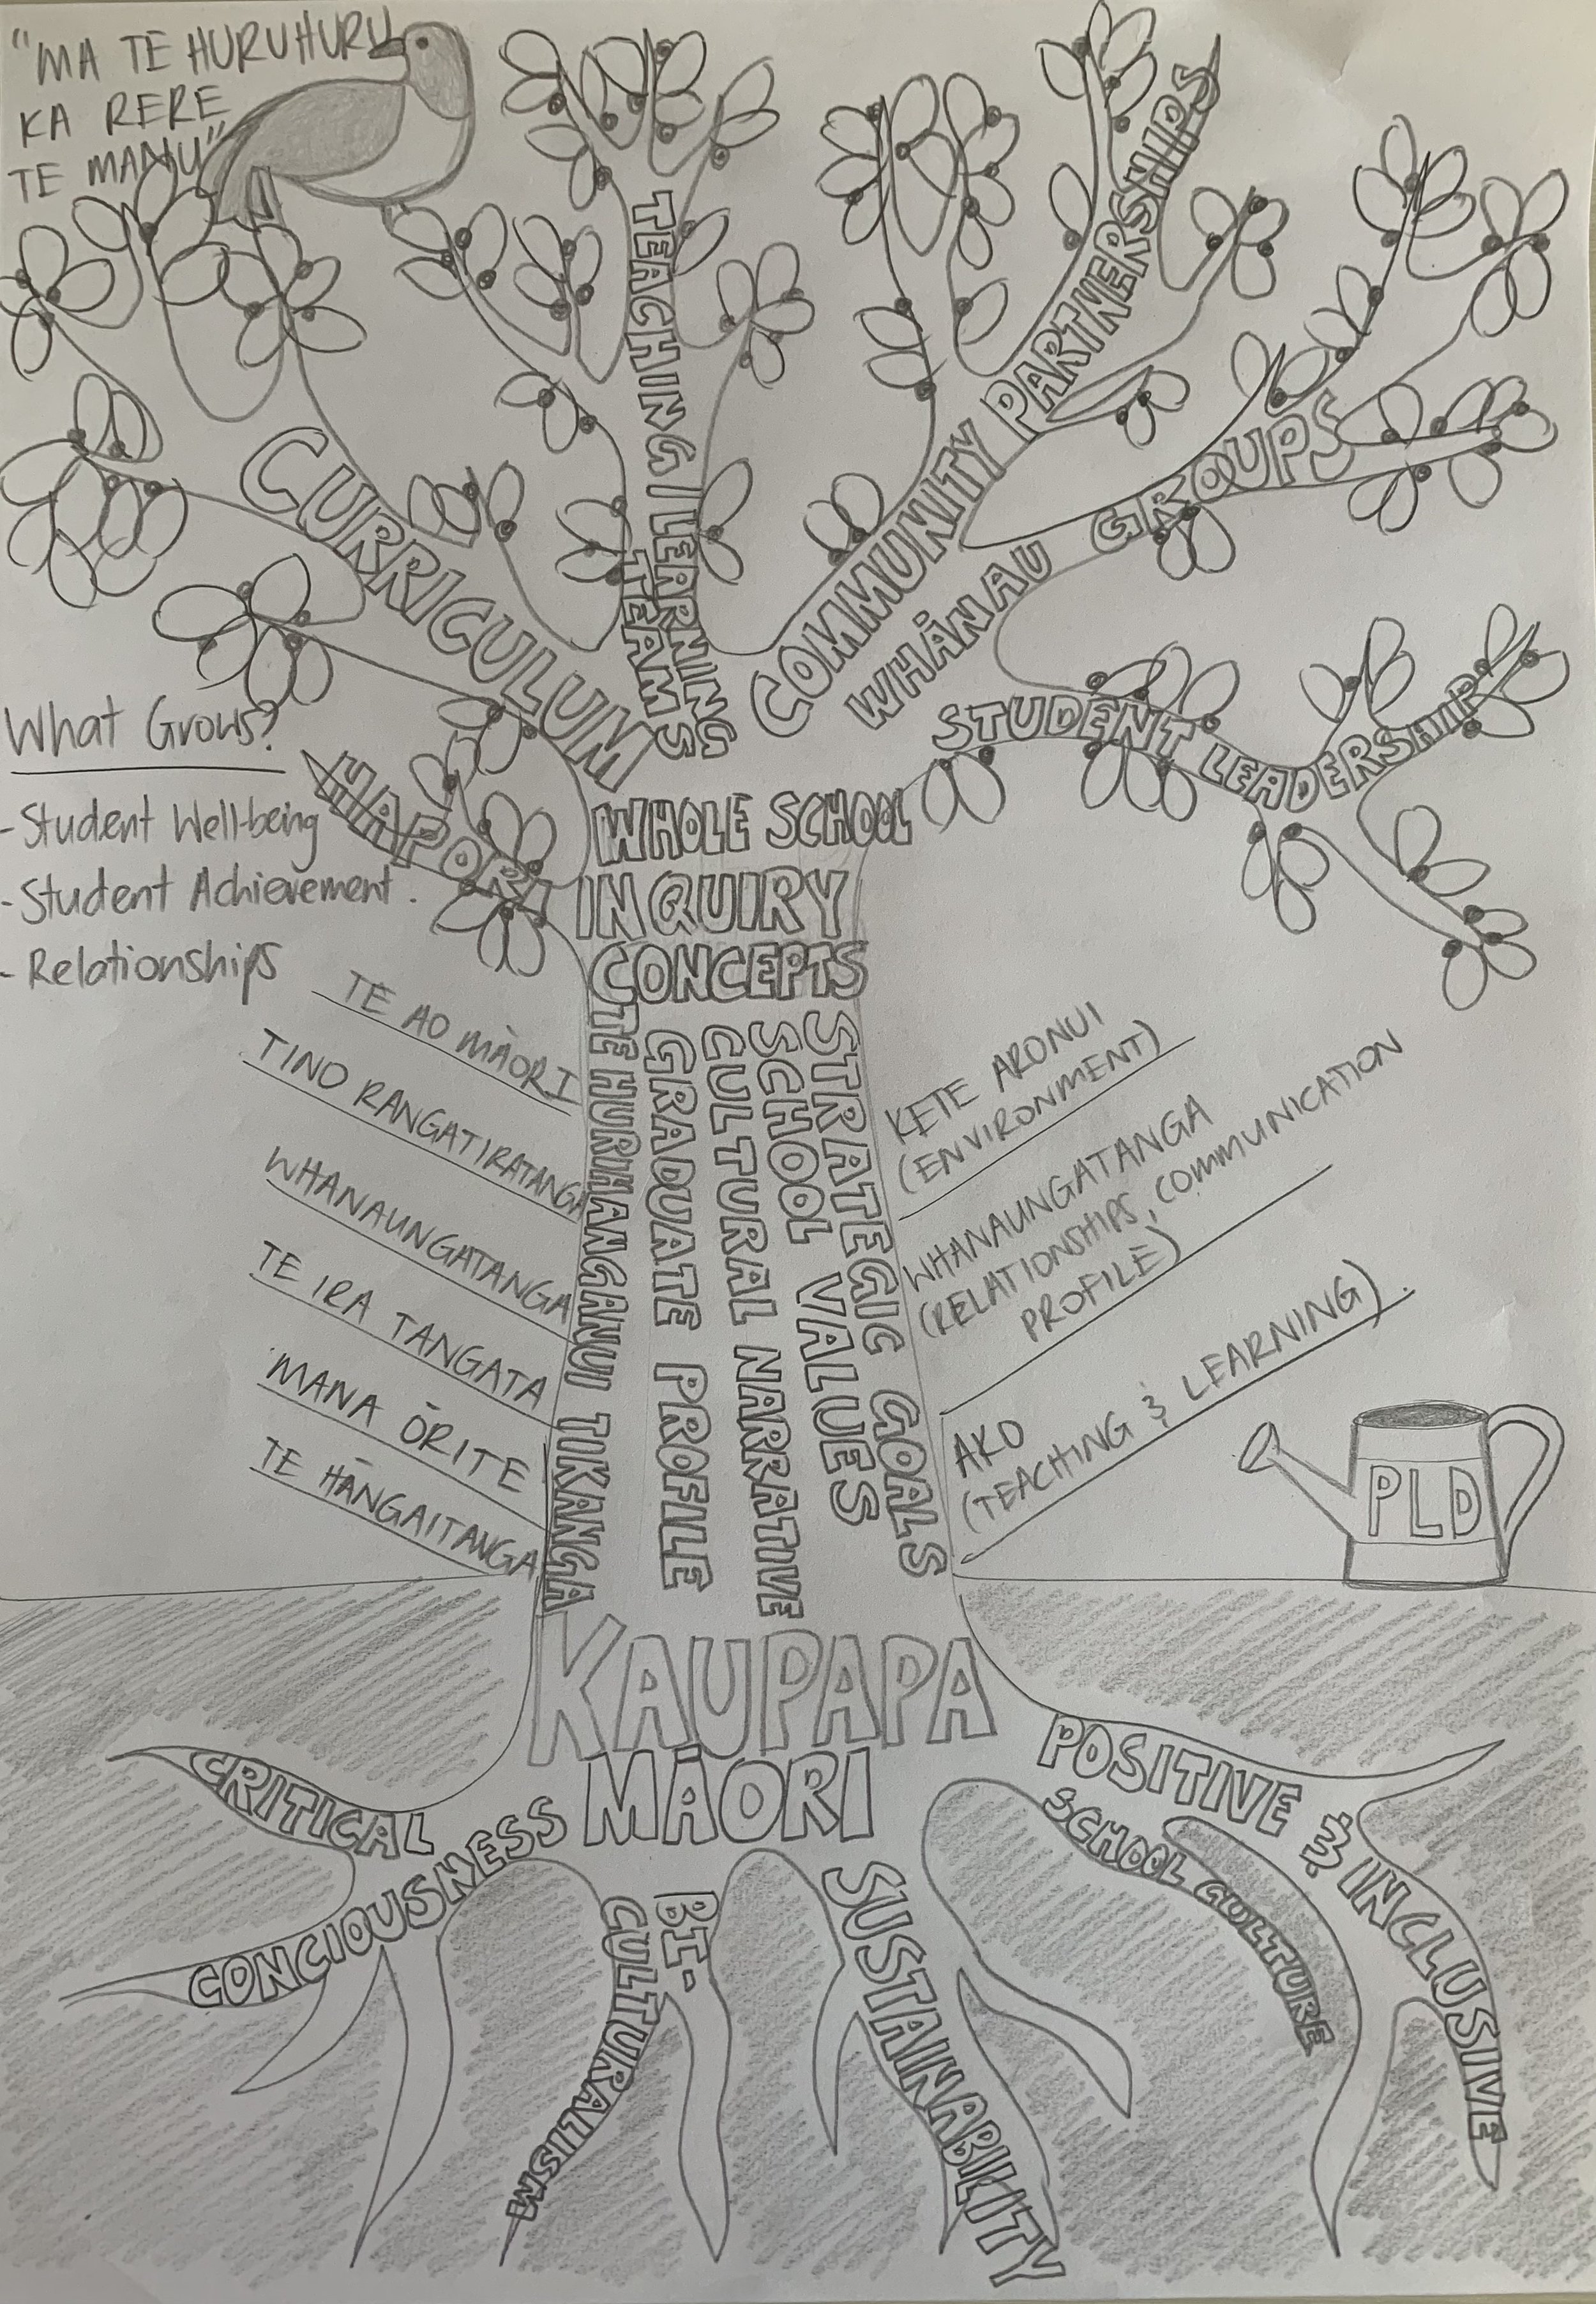 "MA TE HURUHURU
KA RERE
TE MANU"
TEACHING / LERNING
TEAMS
COMMUNITY PARTNERSHIPS
CURRICULUM
WHĀNAU GROUPS
STUDENT LEADERSHIP
HAPORI
What Grows?
- Student Well-being
- Student Achievement.
- Relationships
WHOLE SCHOOL
INQUIRY
CONCEPTS
TE AO MĀORI
TINO RANGATIRATANGA
WHANAUNGATANGA
TE IRA TANGATA
MANA ŌRITE
TE HĀNGAITANGA
TE HURIHANGANUI TIKANGA
GRADUATE PROFILE
CULTURAL NARRATIVE
SCHOOL VALUES
STRATEGIC GOALS
KETE ARONUI
(ENVIRONMENT)
WHANAUNGATANGA
(RELATIONSHIPS, COMMUNICATION
PROFILE)
AKO
(TEACHING & LEARNING).
PLD
KAUPAPA
MĀORI
CRITICAL
CONCIOUSNESS
BI-
CULTURALISM
SUSTAINABILITY
POSITIVE & INCLUSIVE
SCHOOL CULTURE